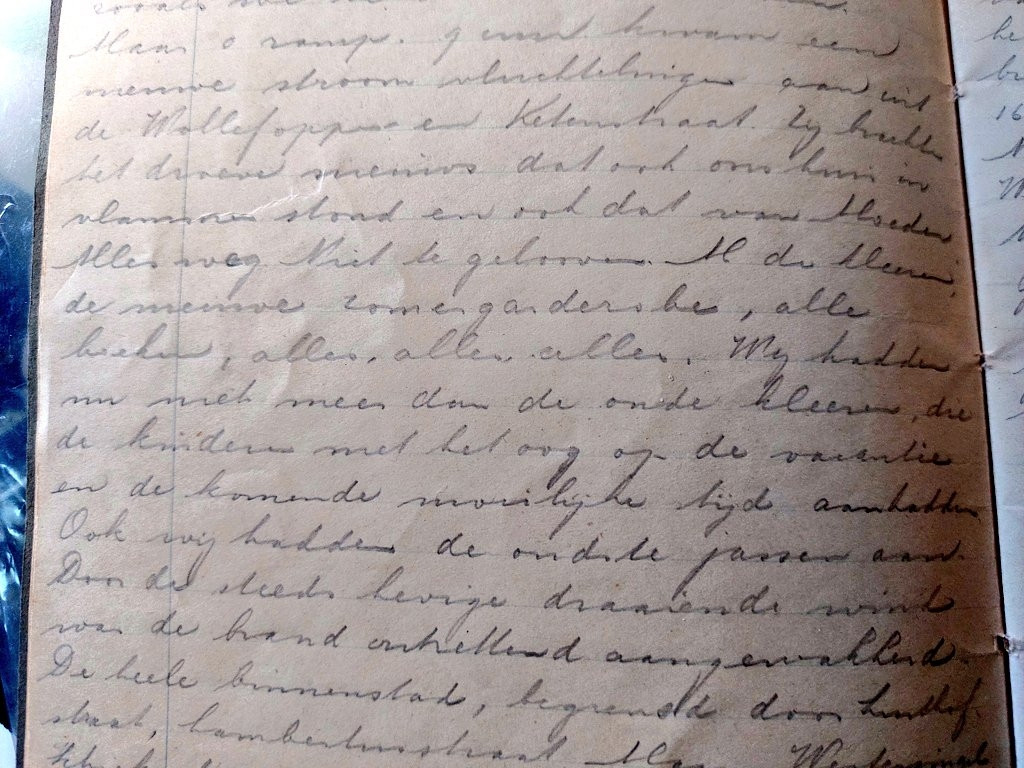 Maar o ramp. kwam een
nieuwe stroom vluchtelingen aan uit
de Wollefoppen en Ketenstraat. Zij brachten
het droeve nieuws dat ook ons huis in
vlammen stond en ook dat van Moeder
Alles weg Niet te gelooven. Al de kleeren,
de nieuwe zomergarderobe, alle
boeken, alles, alles, alles. Wij hadden
nu niet meer dan de oude kleeren, die
de kinderen met het oog op de vacantie
en de komende moeilijke tijd aanhadden
Ook wij hadden de oudste jassen aan.
Door de steeds hevige draaiende wind
was de brand ontzettend aangewakkerd.
De heele binnenstad, begrensd door
straat, Lambertusstraat Maas